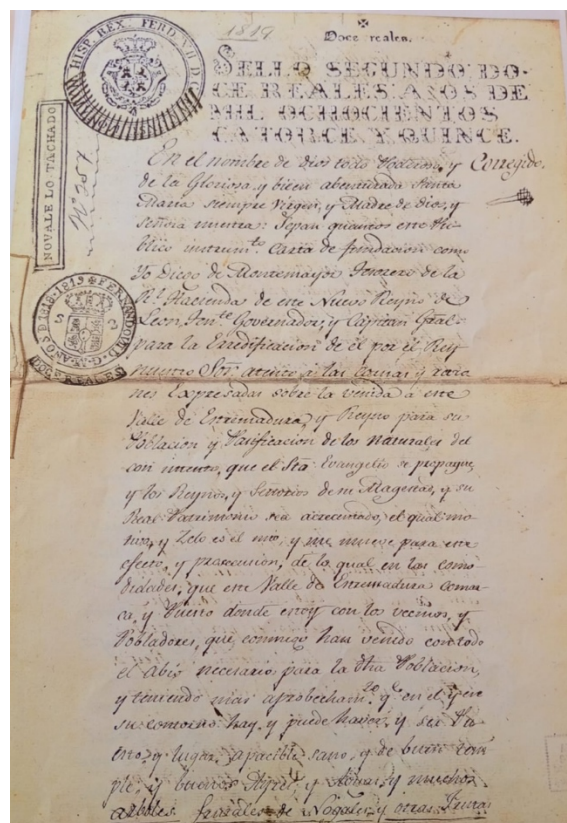 1819
Doce reales.
HISP. REX. FERD. VII D. G.
SELLO SEGUNDO DO-
CE REALES: AÑOS DE
MIL OCHOCIENTOS
CATORCE Y QUINCE.
NOVALE LO TACHADO
En el nombre de dios todo Poderoso, y Corregido.
de la Gloriosa, y bien abenturada Santa
Maria siempre Virgen, y Madre de Dios, y
Señora nuestra: Sepan quantos este Pu-
blico instrum.to Carta de fundacion como
Yo Diego de Montemayor Tesorero de la
R.l Hacienda de este Nuevo Reyno de
Leon, Ten.te Governador, y Capitan Gral
para la Erredificacion de el por el Rey
nuestro Sor. atento à las causas, y razo
nes Expresadas sobre la venida à este
Valle de Extremadura, y Reyno para su
Poblacion y Pasificacion de los naturales del
con intento, que el Sto. Evangelio se propague,
y los Reynos, y Señorios de su Magestad, y su
Real Patrimonio sea acresentado, el qual mo-
tivo, y Zelo es el mio, y me mueve para este
efecto, y prosecucion, de lo qual en las como-
didades, que este Valle de Extremadura comar-
ca, y Puesto donde estoy con los vecinos, y
Pobladores, que conmigo han venido con todo
el abio necesario para la dha Poblacion,
y teniendo mas aprobecham.to q.e en el y en
su contorno hay, y puede haver, y ser Pu-
esto, y lugar apacible sano, y de buen tem
ple, y buenos Ayres, y Aguas, y muchos
arboles frutales de Nogales, y otras Frutas
FERNANDO VII D. G. AÑOS D 1818-1819
DOCE REALES